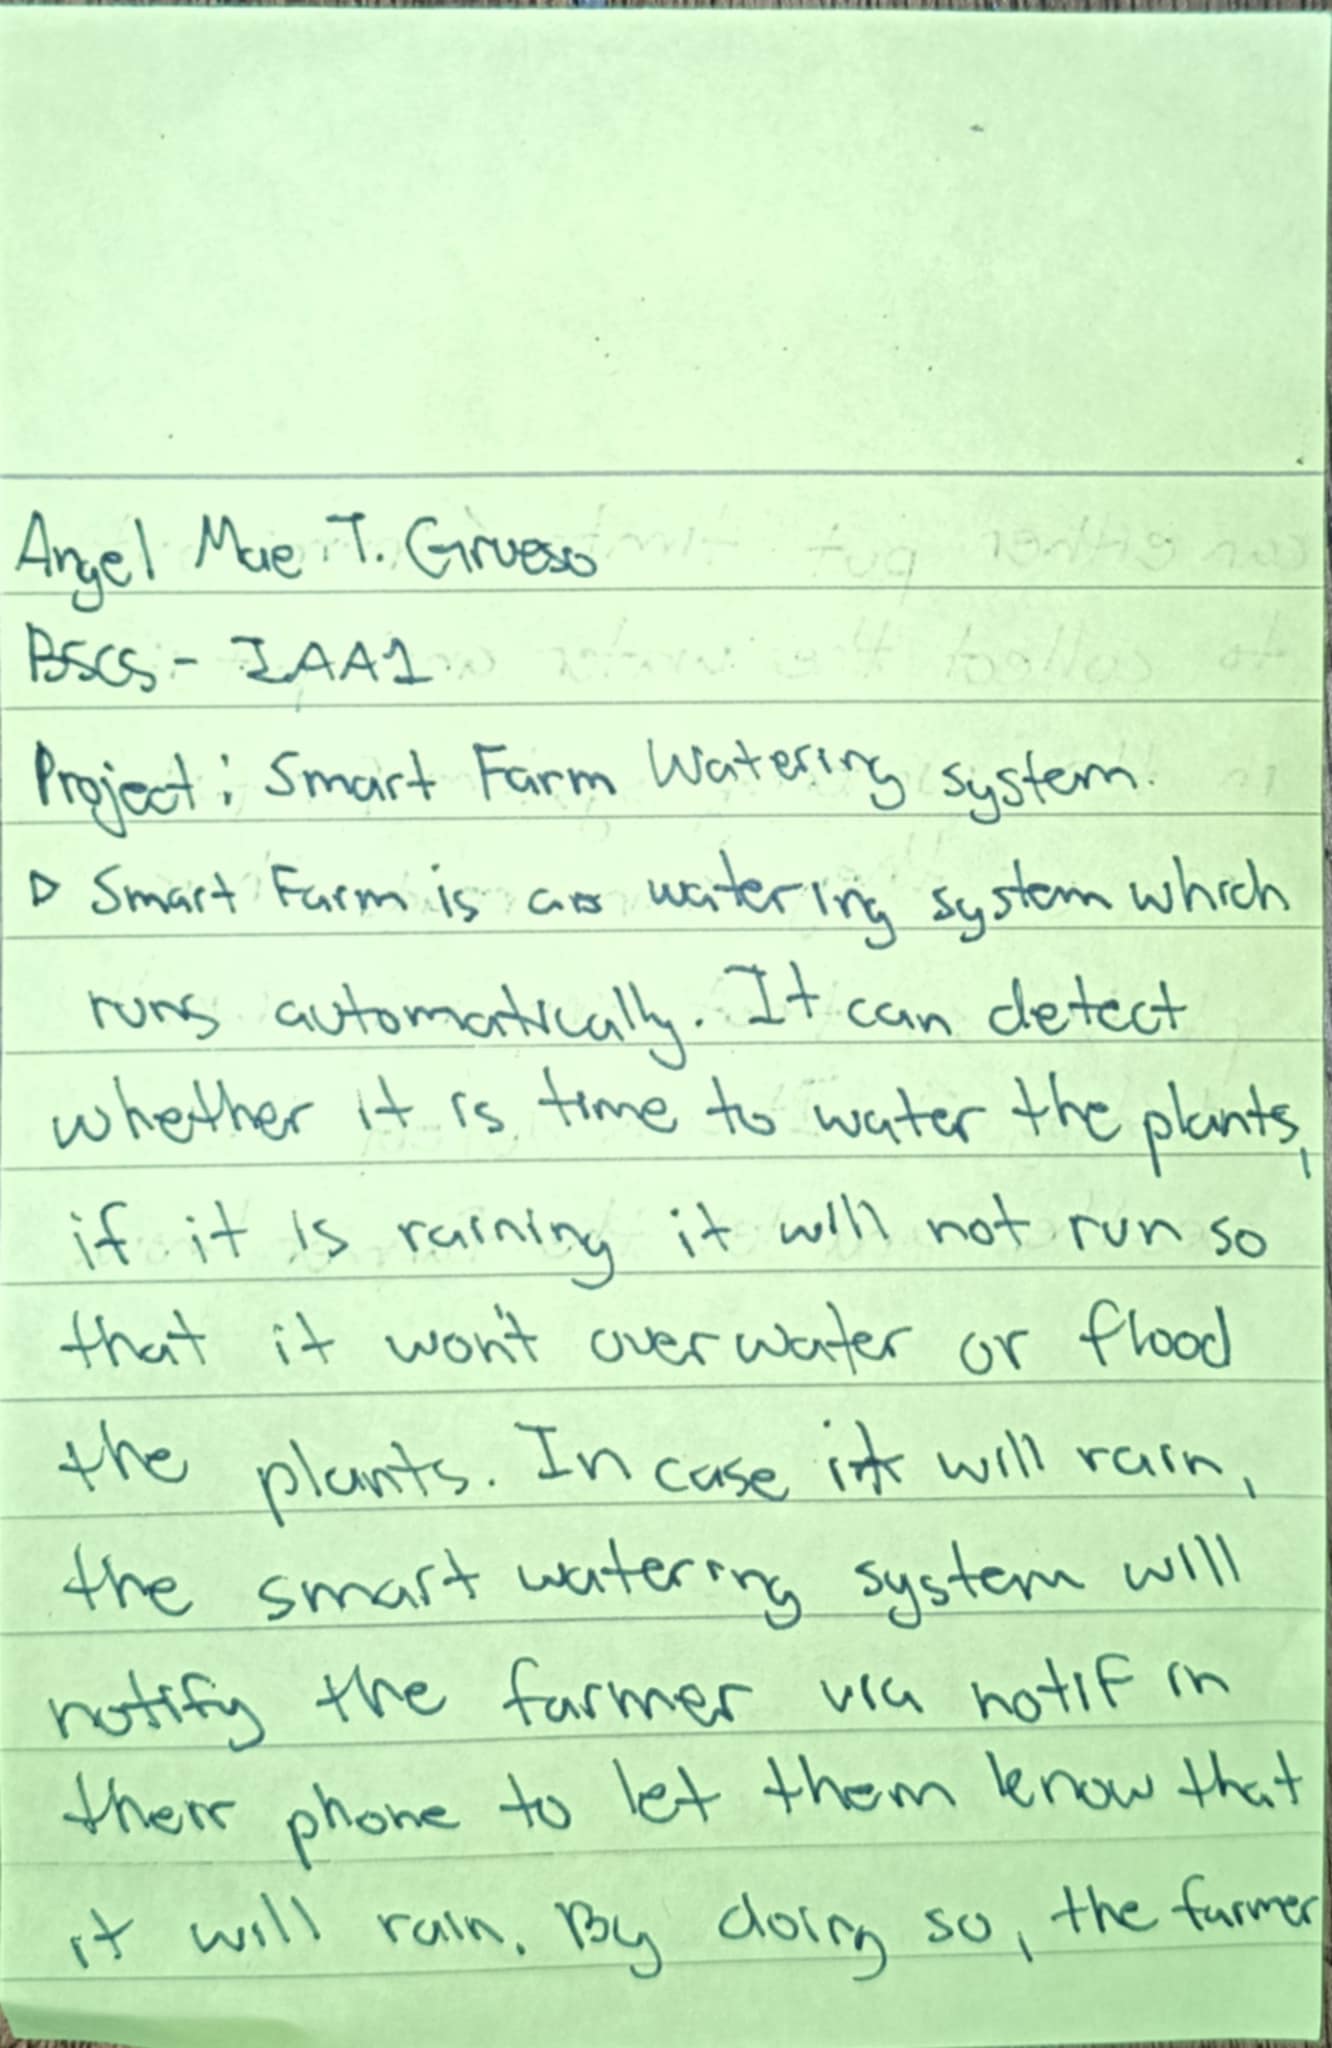 Angel Mae T. Grueso
BSCS - IAA1
Project: Smart Farm Watering system.
▷ Smart Farm is a watering system which
runs automatically. It can detect
whether it is time to water the plants,
if it is raining it will not run so
that it won't overwater or flood
the plants. In case it will rain,
the smart watering system will
notify the farmer via notif in
their phone to let them know that
it will rain. By doing so, the farmer